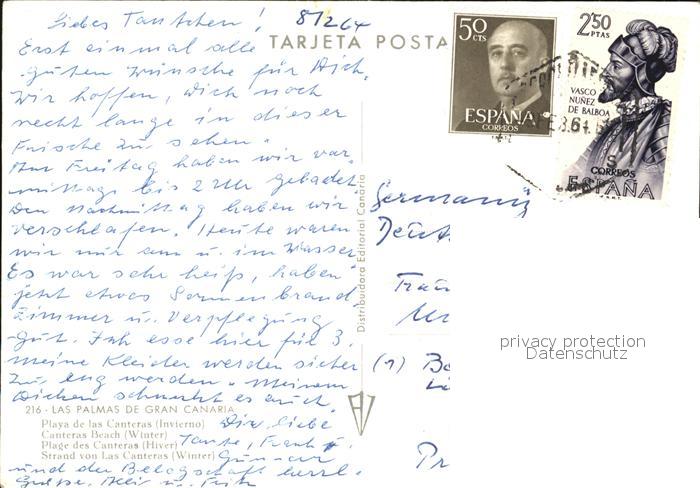 Liebes Tantchen! 8/2 64
Erst einmal alle
guten Wünsche für Dich.
Wir hoffen, Dich noch
recht lange in dieser
Frische zu sehen.
Am Freitag haben wir vor-
mittags bis 2 Uhr gebadet.
Den Nachmittag haben wir
verschlafen. Heute waren
wir nur am u. im Wasser.
Es war sehr heiß, haben
jetzt etwas Sonnenbrand
Zimmer u. Verpflegung
gut. Ich esse hier für 3.
Meine Kleider werden sicher
zu eng werden. Meinem
Dicken schmeckt es auch.
Dir, liebe
Tante, Frank u.
Gunnar
und der Belegschaft herzl.
Grüße. u. Fritz
TARJETA POSTA
50
CTS
ESPAÑA
CORREOS
2'50
PTAS
VASCO
NUÑEZ
DE BALBOA
CORREOS
ESPAÑA
Distribuidora Editorial Canaria
Germany
Deut
Frau
(1) Be
privacy protection
Datenschutz
216 - LAS PALMAS DE GRAN CANARIA
Playa de las Canteras (Invierno)
Canteras Beach (Winter)
Plage des Canteras (Hiver)
Strand von Las Canteras (Winter)